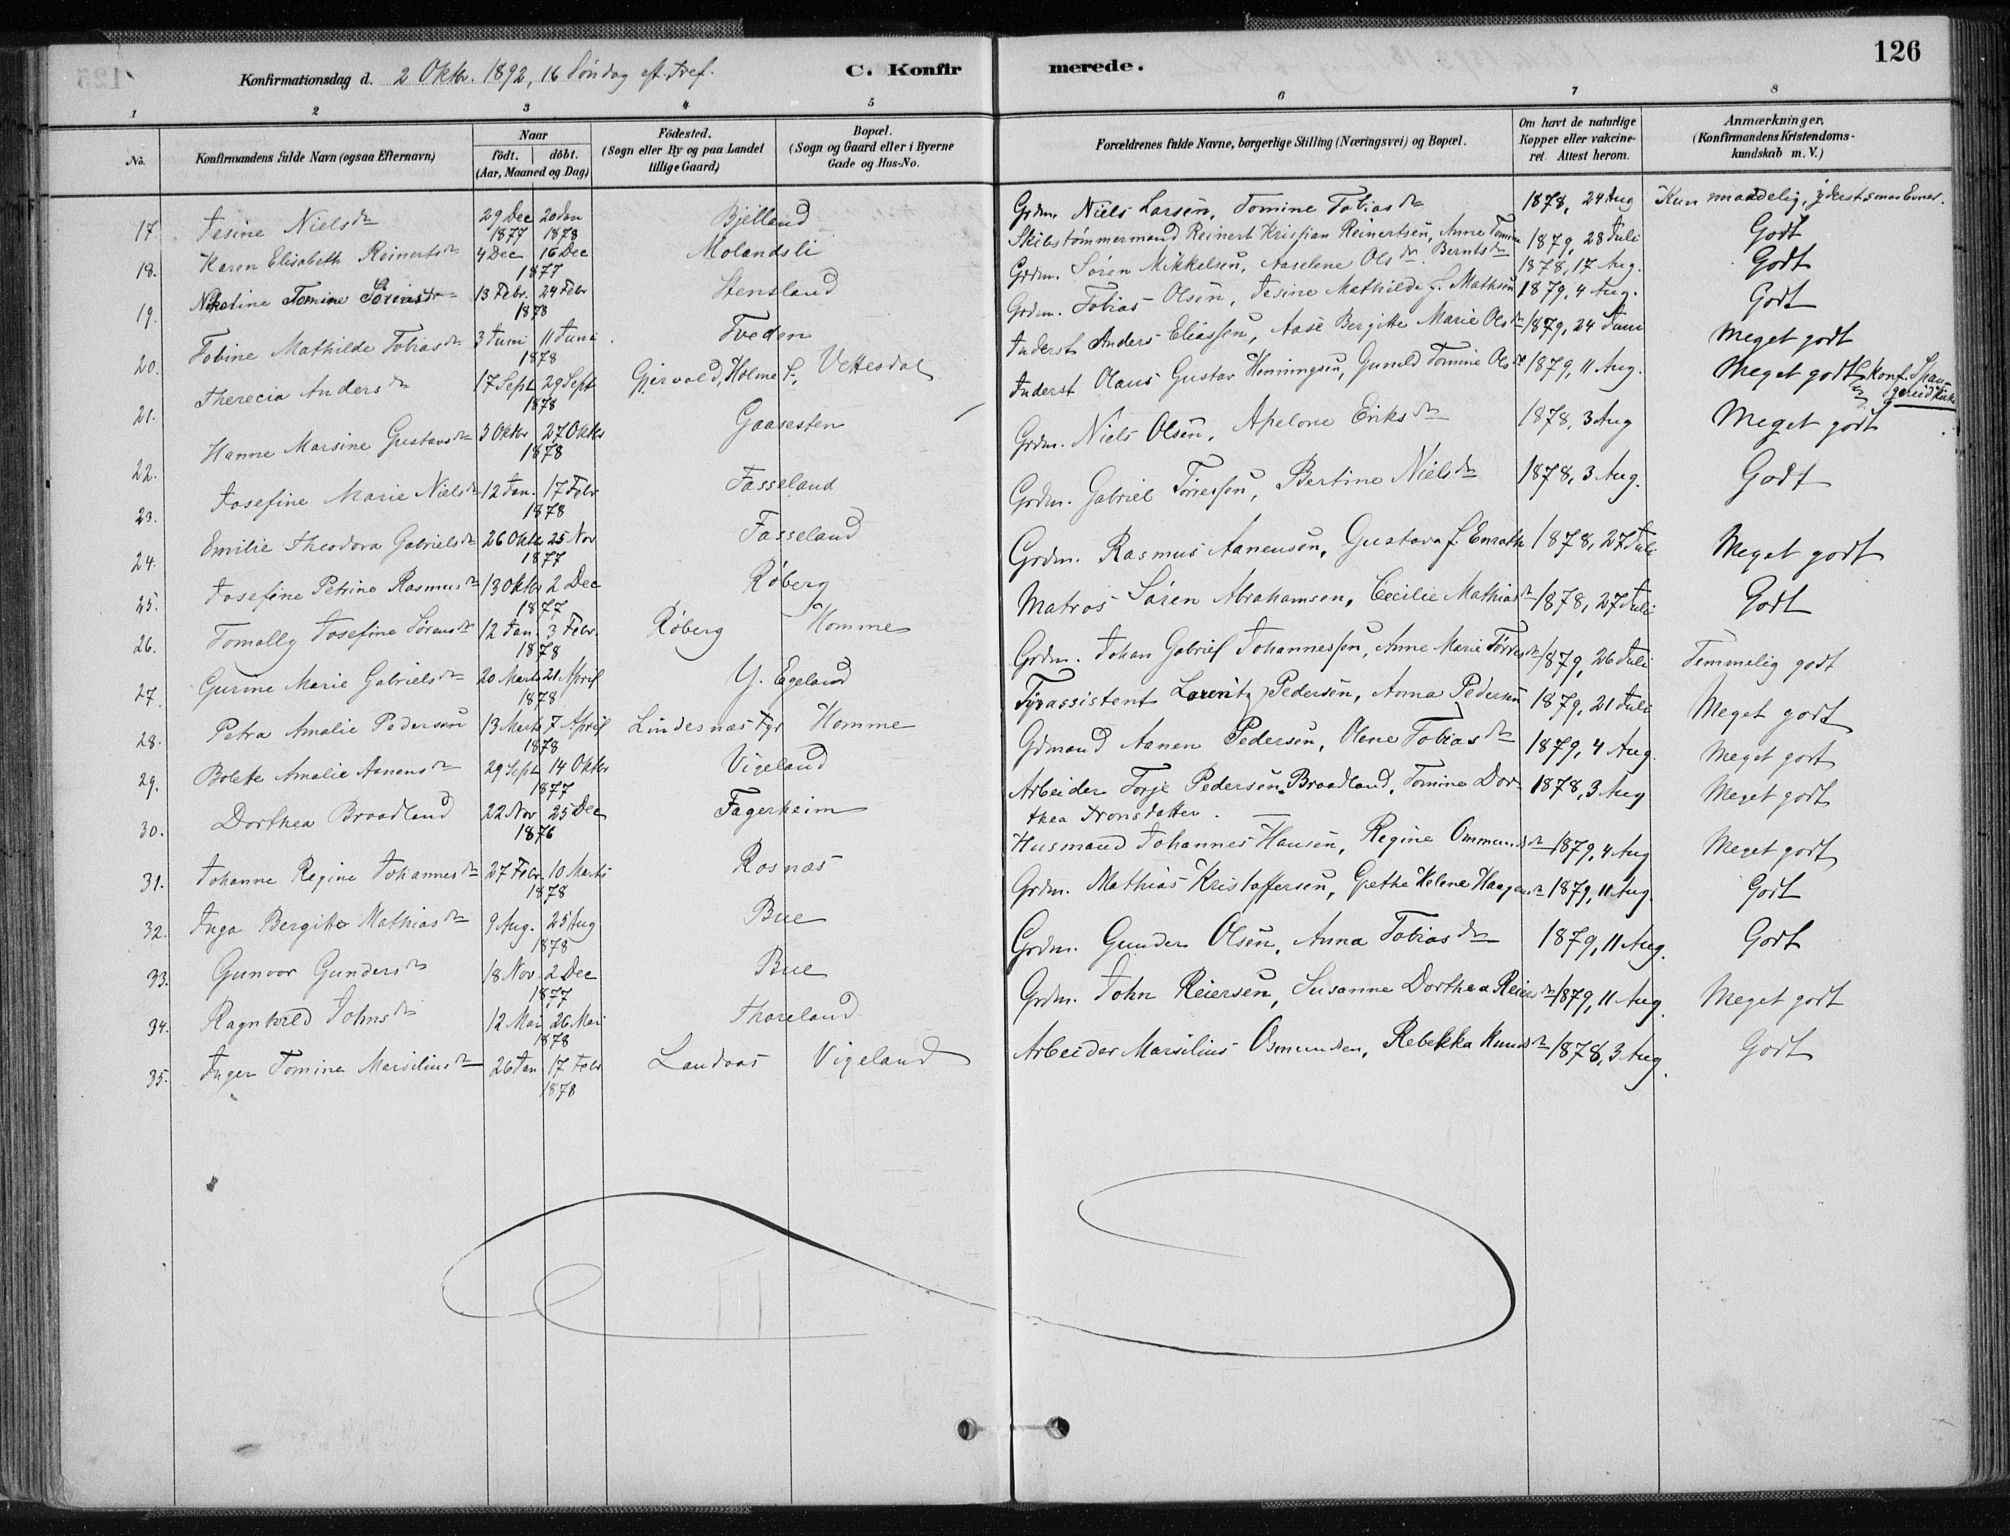 126
Konfirmationsdag d. 2 Oktbr. 1892, 16 Söndag eft. Tref. C. Konfirmerede.
1 2 3 4 5 6 7 8
No.
Konfirmandens fulde Navn (ogsaa Efternavn)
Naar
födt. döbt.
(Aar, Maaned og Dag)
Födested.
(Sogn eller By og paa Landet
tillige Gaard)
Bopæl.
(Sogn og Gaard eller i Byerne
Gade og Hus-No.
Forældrenes fulde Navne, borgerlige Stilling (Næringsvei) og Bopæl.
Om havt de naturlige
Kopper eller vakcine-
ret Attest herom.
Anmærkninger.
(Konfirmandens Kristendoms-
kundskab m. V.)
17. Jesine Nielsdtr 29 Dec 1877 20 Jan 1878 Bjelland Grdm. Niels Larsen, Tomine Tobiasdtr 1878, 24 Aug Kun maadelig, yderst smaa Evner.
18. Karen Elisabeth Reinertsdtr 4 Dec 16 Dec 1877 Molandsli Skibstømmermand Reinert Kristian Reinertsen, Anne Tomine Berntsdtr 1879, 28 Juli Godt
19. Nikoline Tomine Sörensdtr 13 Febr. 24 Febr 1878 Stensland Grdm. Sören Mikkelsen, Aaselene Olsdtr 1878, 17 Aug. Godt
20. Tobine Mathilde Tobiasdtr 3 Juni 11 Juni 1878 Tveden Grdm. Tobias Olsen, Jesine Mathilde f. Mathsen 1879, 4 Aug. Godt
21. Therecia Andersdtr 17 Sept 29 Sept 1878 Gjervold, Holme S. Vettesdal Inderst Anders Eliassen, Aase Bergitte Marie Olsdtr 1879, 24 Juni Meget godt
22. Hanne Marsine Gustavsdtr 3 Oktbr 27 Oktbr 1878 Gaasesten Inderst Olaus Gustav Henningsen, Guneld Tomine Olsdtr 1879, 11 Aug. Meget godt Konf. Spangereid Kirke
23. Josefine Marie Nielsdtr 12 Jan. 17 Febr 1878 Fasseland Grdm. Niels Olsen, Apelone Eriksdtr 1878, 3 Aug Meget godt
24. Emilie Theodora Gabrielsdtr 26 Oktbr 25 Nov 1877 Fasseland Grdm. Gabriel Törressen, Bertine Nielsdtr 1878, 3 Aug. Godt
25. Josefine Petrine Rasmusdtr 13 Oktbr 2 Dec 1877 Röberg Grdm. Rasmus Aanensen, Gustava f. 1878, 27 Juli Meget godt
26. Tomally Josefine Sörensdtr 12 Jan. 3 Febr. 1878 Röberg Homme Matros Sören Abrahamsen, Cecilie Mathiasdtr 1878, 27 Juli Godt
27. Gurine Marie Gabrielsdtr 20 Marts 21 April 1878 Y. Egeland Grdm. Johan Gabriel Johannessen, Anne Marie Törresdtr 1879, 26 Juli Temmelig godt
28. Petra Amalie Pedersen 13 Marts 7 April 1878 Lindesnæs Fyr Homme Fyrassistent Lorentz Pedersen, Anna Pedersen 1879, 21 Juli Meget godt
29. Bolete Amalie Aanensdtr 29 Sept 14 Oktbr 1877 Vigeland Grdmand Aanen Pedersen, Olene Tobiasdtr 1879, 4 Aug. Meget godt
30. Dorthea Braadland 22 Nov 25 Dec 1876 Fagerheim Arbeider Torje Pedersen Braadland, Tomine Dorthea Tronsdatter. 1878, 3 Aug Meget godt
31. Johanne Regine Johannesdtr 27 Febr. 10 Marts 1878 Rosnæs Husmand Johannes Hansen, Regine Ommundsdtr 1879, 4 Aug Meget godt
32. Inga Bergitte Mathiasdtr 9 Aug. 25 Aug 1878 Bue Grdm. Mathias Kristoffersen, Grethe Helene Haagensdtr 1879, 11 Aug. Godt
33. Gunvor Gundersdtr 18 Nov. 2 Dec 1877 Bue Grdm. Gunder Olsen, Anna Tobiasdtr 1879, 11 Aug. Godt
34. Ragnhild Johnsdtr 12 Mai 26 Mai 1878 Thoreland Grdm. John Reiersen, Susanne Dorthea Reiersdtr 1879, 11 Aug. Meget godt
35. Inger Tomine Marsiliusdtr 26 Jan 17 Febr 1878 Landaas Vigeland Arbeider Marsilius Osmundsen, Rebekka Knudsdtr 1878, 3 Aug. Godt